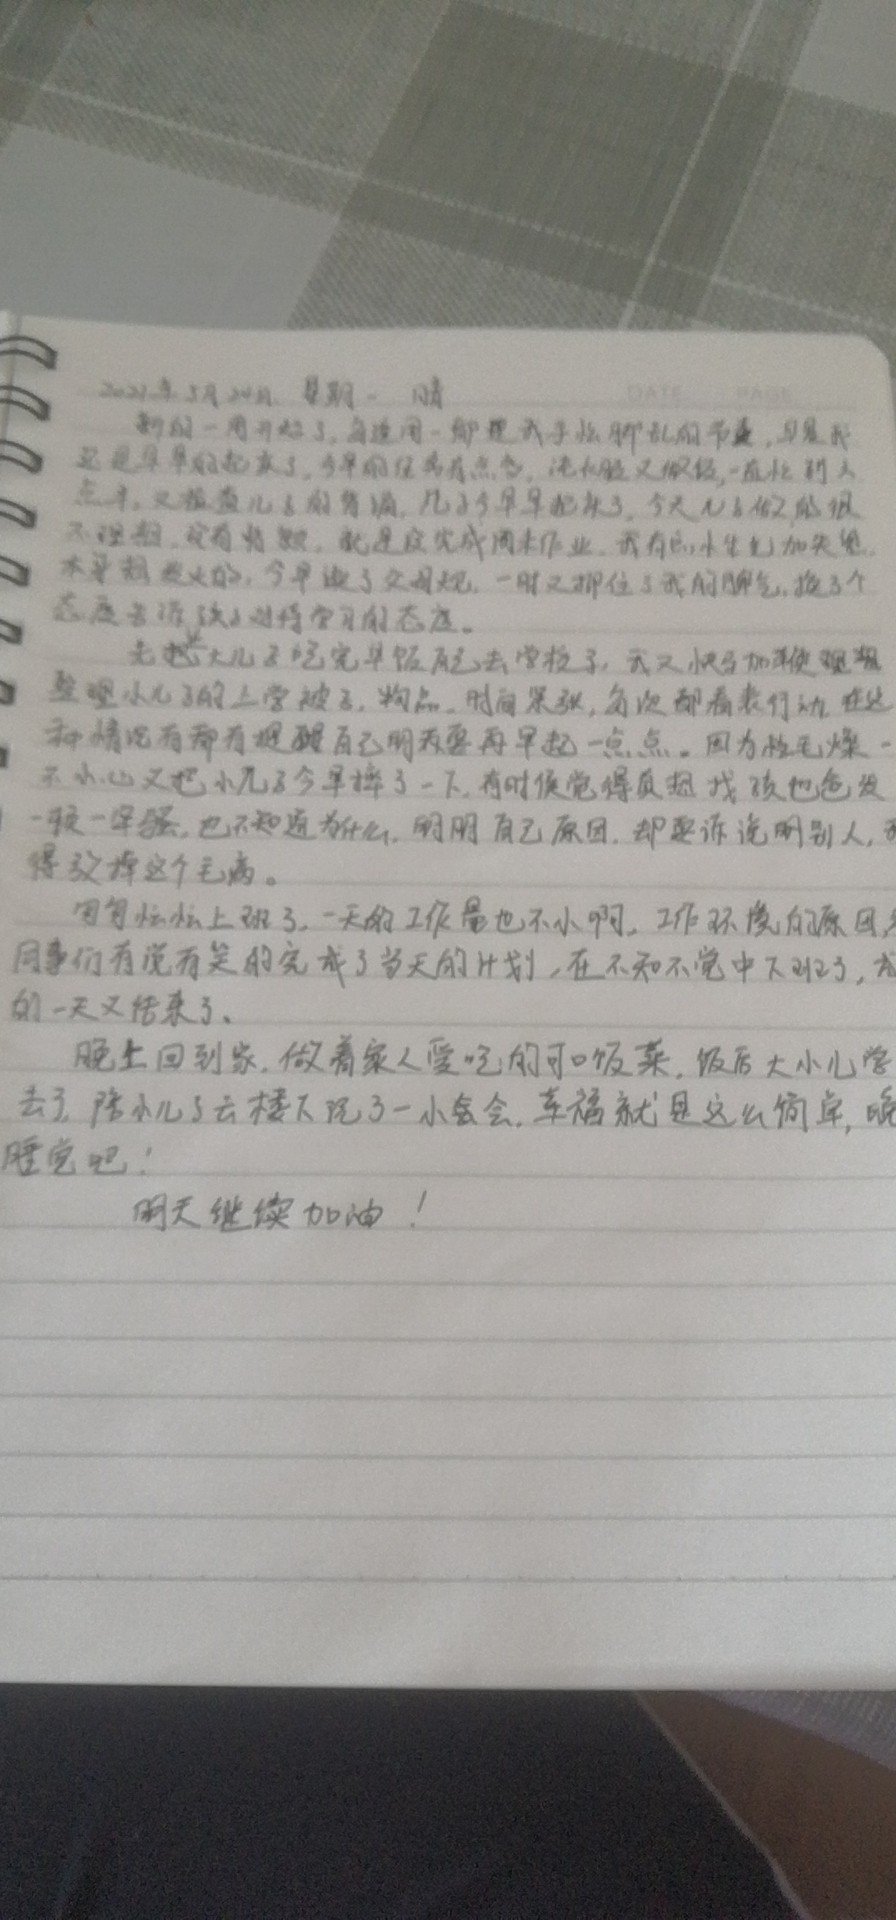 2021年5月24日 星期一 晴
DATE PAGE
新的一周开始了,每逢周一都是我手忙脚乱的节奏,
还是早早的起来了,今早的任务有点多,洗衣服又做饭,一直忙到六
点半,又检查儿子的背诵,儿子今早早起来了,今天儿子做的很
不理想,没有背默,就是没完成周末作业,我有的小生气加失望,
本来想发火的,今早读了父母规,一时又抑住了我的脾气,换了个
态度告诉孩子对待学习的态度。
先把大儿子吃完早饭自己去学校了,我又快马加鞭
整理小儿子的上学被子,物品,时间紧张,每次都看表行动,在这
种情况有都有提醒自己明天要再早起一点点。因为性毛燥一
不小心又把小儿子今早摔了一下,有时候觉得真想找孩他爸发
一顿一牢骚,也不知道为什么,明明自己原因,却要诉说用别人,
得改掉这个毛病。
匆匆忙忙上班了,一天的工作量也不小啊,工作环境的原因,
同事们有说有笑的完成了当天的计划,在不知不觉中下班了,
的一天又结束了。
晚上回到家,做着家人爱吃的可口饭菜,饭后大小儿学
去了,陪小儿子去楼下玩了一小会会,幸福就是这么简单,晚
睡觉吧!
明天继续加油!